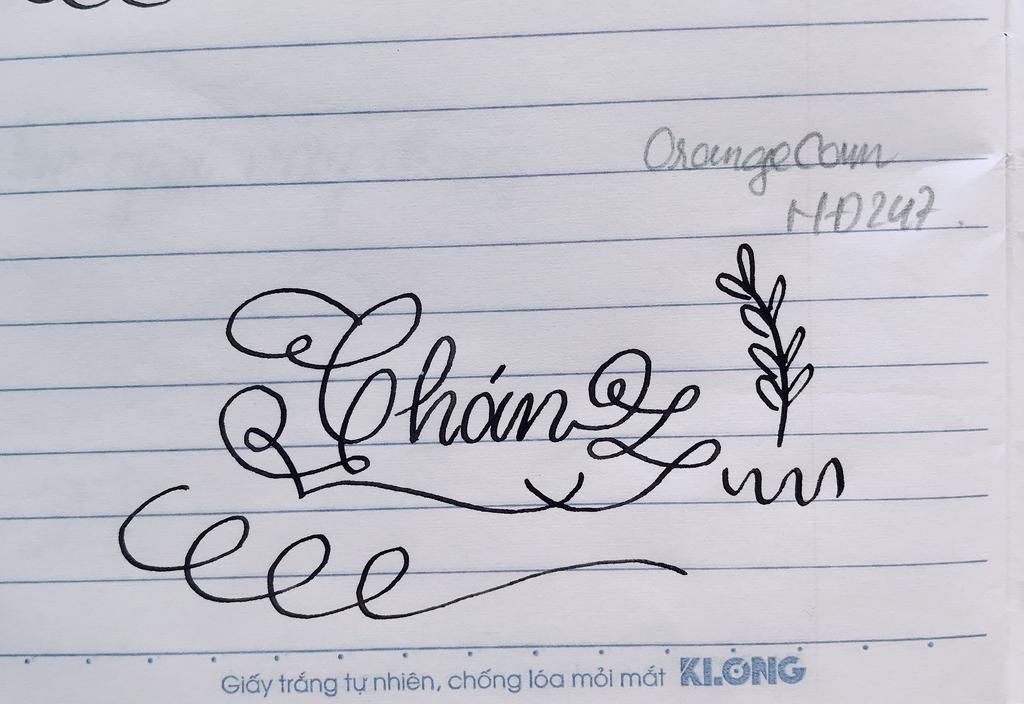 OrangeCam
NĐ247.
Chán
Giấy trắng tự nhiên, chống lóa mỏi mắt KLONG